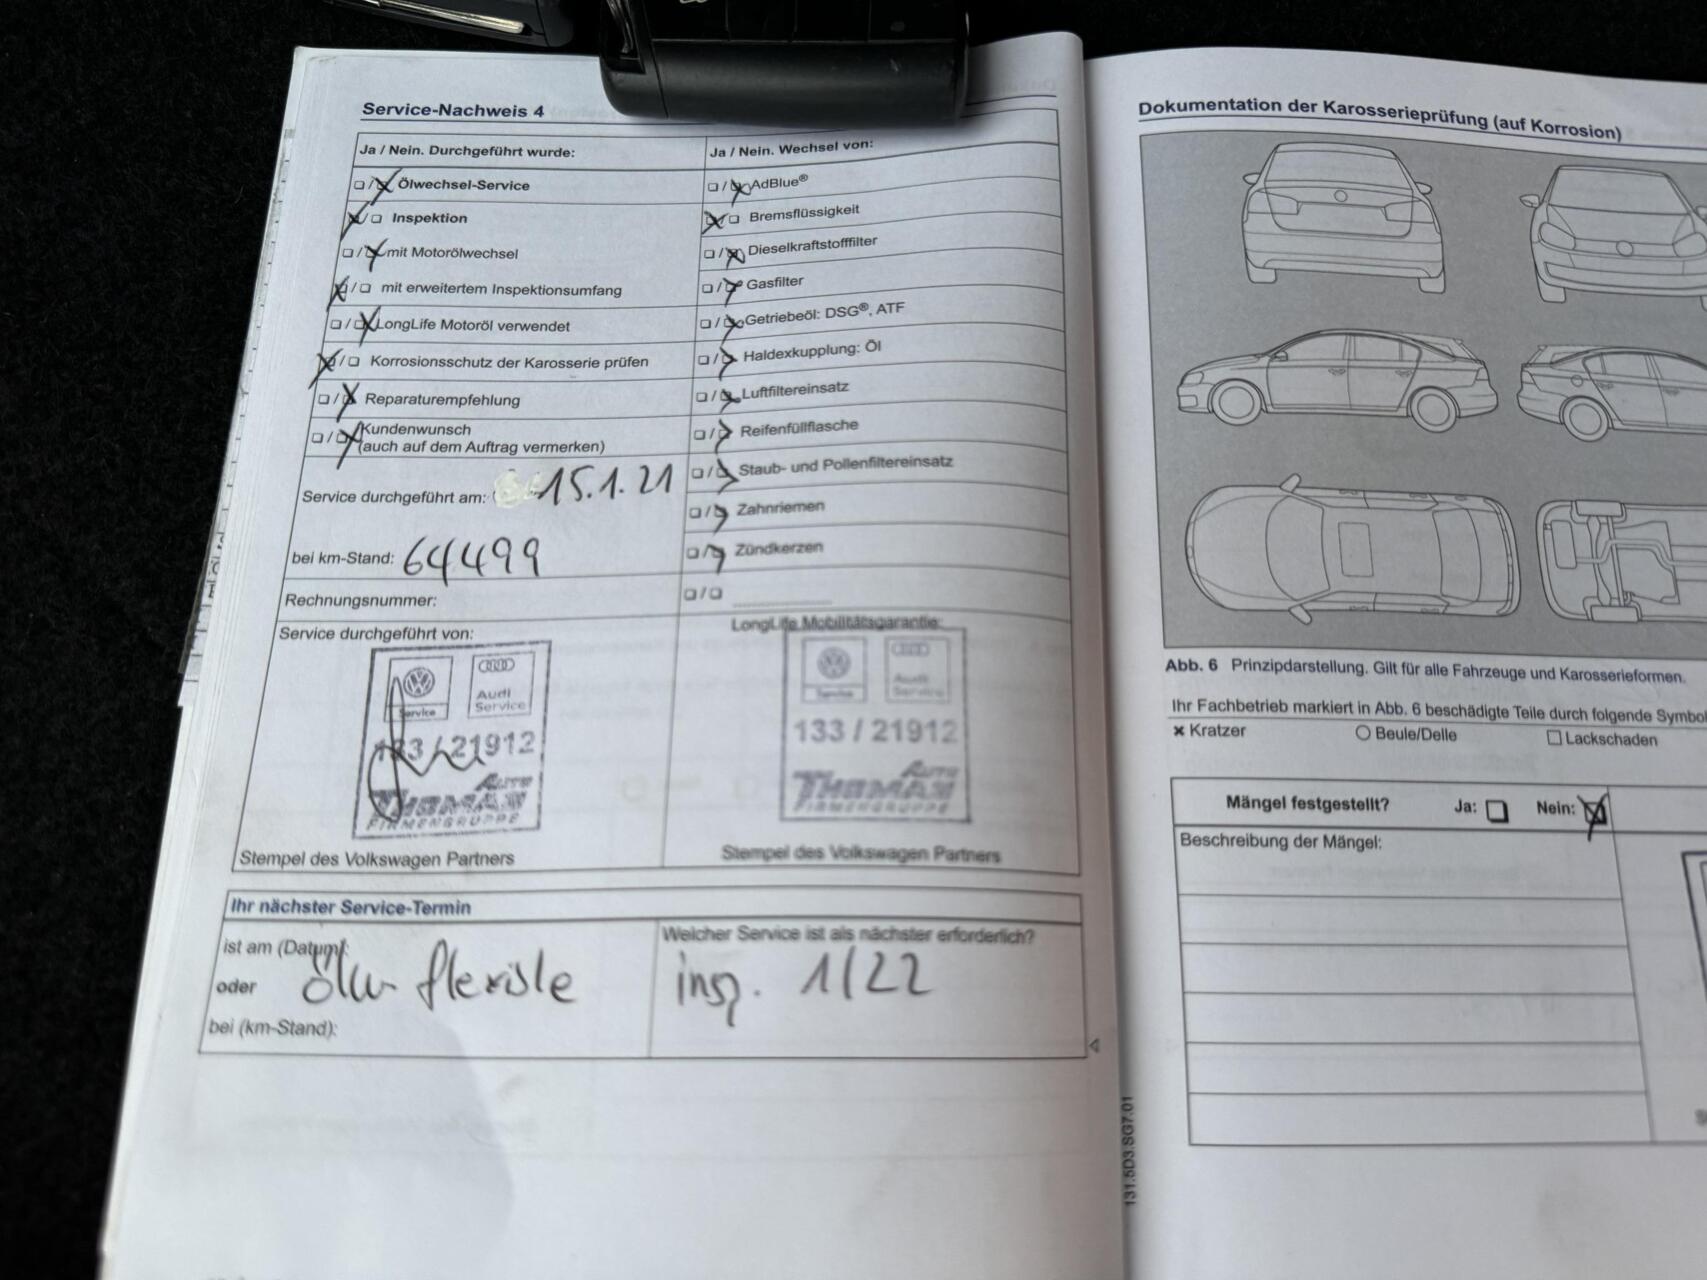 Service-Nachweis 4
Ja / Nein. Durchgeführt wurde:
Ölwechsel-Service
Inspektion
mit Motorölwechsel
mit erweitertem Inspektionsumfang
LongLife Motoröl verwendet
Korrosionsschutz der Karosserie prüfen
Reparaturempfehlung
Kundenwunsch
(auch auf dem Auftrag vermerken)
Service durchgeführt am: 15.1.21
bei km-Stand: 64499
Rechnungsnummer:
Ja / Nein. Wechsel von:
AdBlue®
Bremsflüssigkeit
Dieselkraftstofffilter
Gasfilter
Getriebeöl: DSG®, ATF
Haldexkupplung: Öl
Luftfiltereinsatz
Reifenfüllflasche
Staub- und Pollenfiltereinsatz
Zahnriemen
Zündkerzen
Service durchgeführt von:
Service
Audi
Service
133 / 21912
AUTO
THOMAS
FIRMENGRUPPE
Stempel des Volkswagen Partners
LongLife Mobilitätsgarantie:
Service
Audi
Service
133 / 21912
AUTO
THOMAS
FIRMENGRUPPE
Stempel des Volkswagen Partners
Ihr nächster Service-Termin
ist am (Datum):
oder
bei (km-Stand):
ölw flexible
Welcher Service ist als nächster erforderlich?
insp. 1/22
131.5D3.SG7.01
Dokumentation der Karosserieprüfung (auf Korrosion)
Abb. 6 Prinzipdarstellung. Gilt für alle Fahrzeuge und Karosserieformen.
Ihr Fachbetrieb markiert in Abb. 6 beschädigte Teile durch folgende Symbol
× Kratzer
Beule/Delle
Lackschaden
Mängel festgestellt? Ja: Nein:
Beschreibung der Mängel: